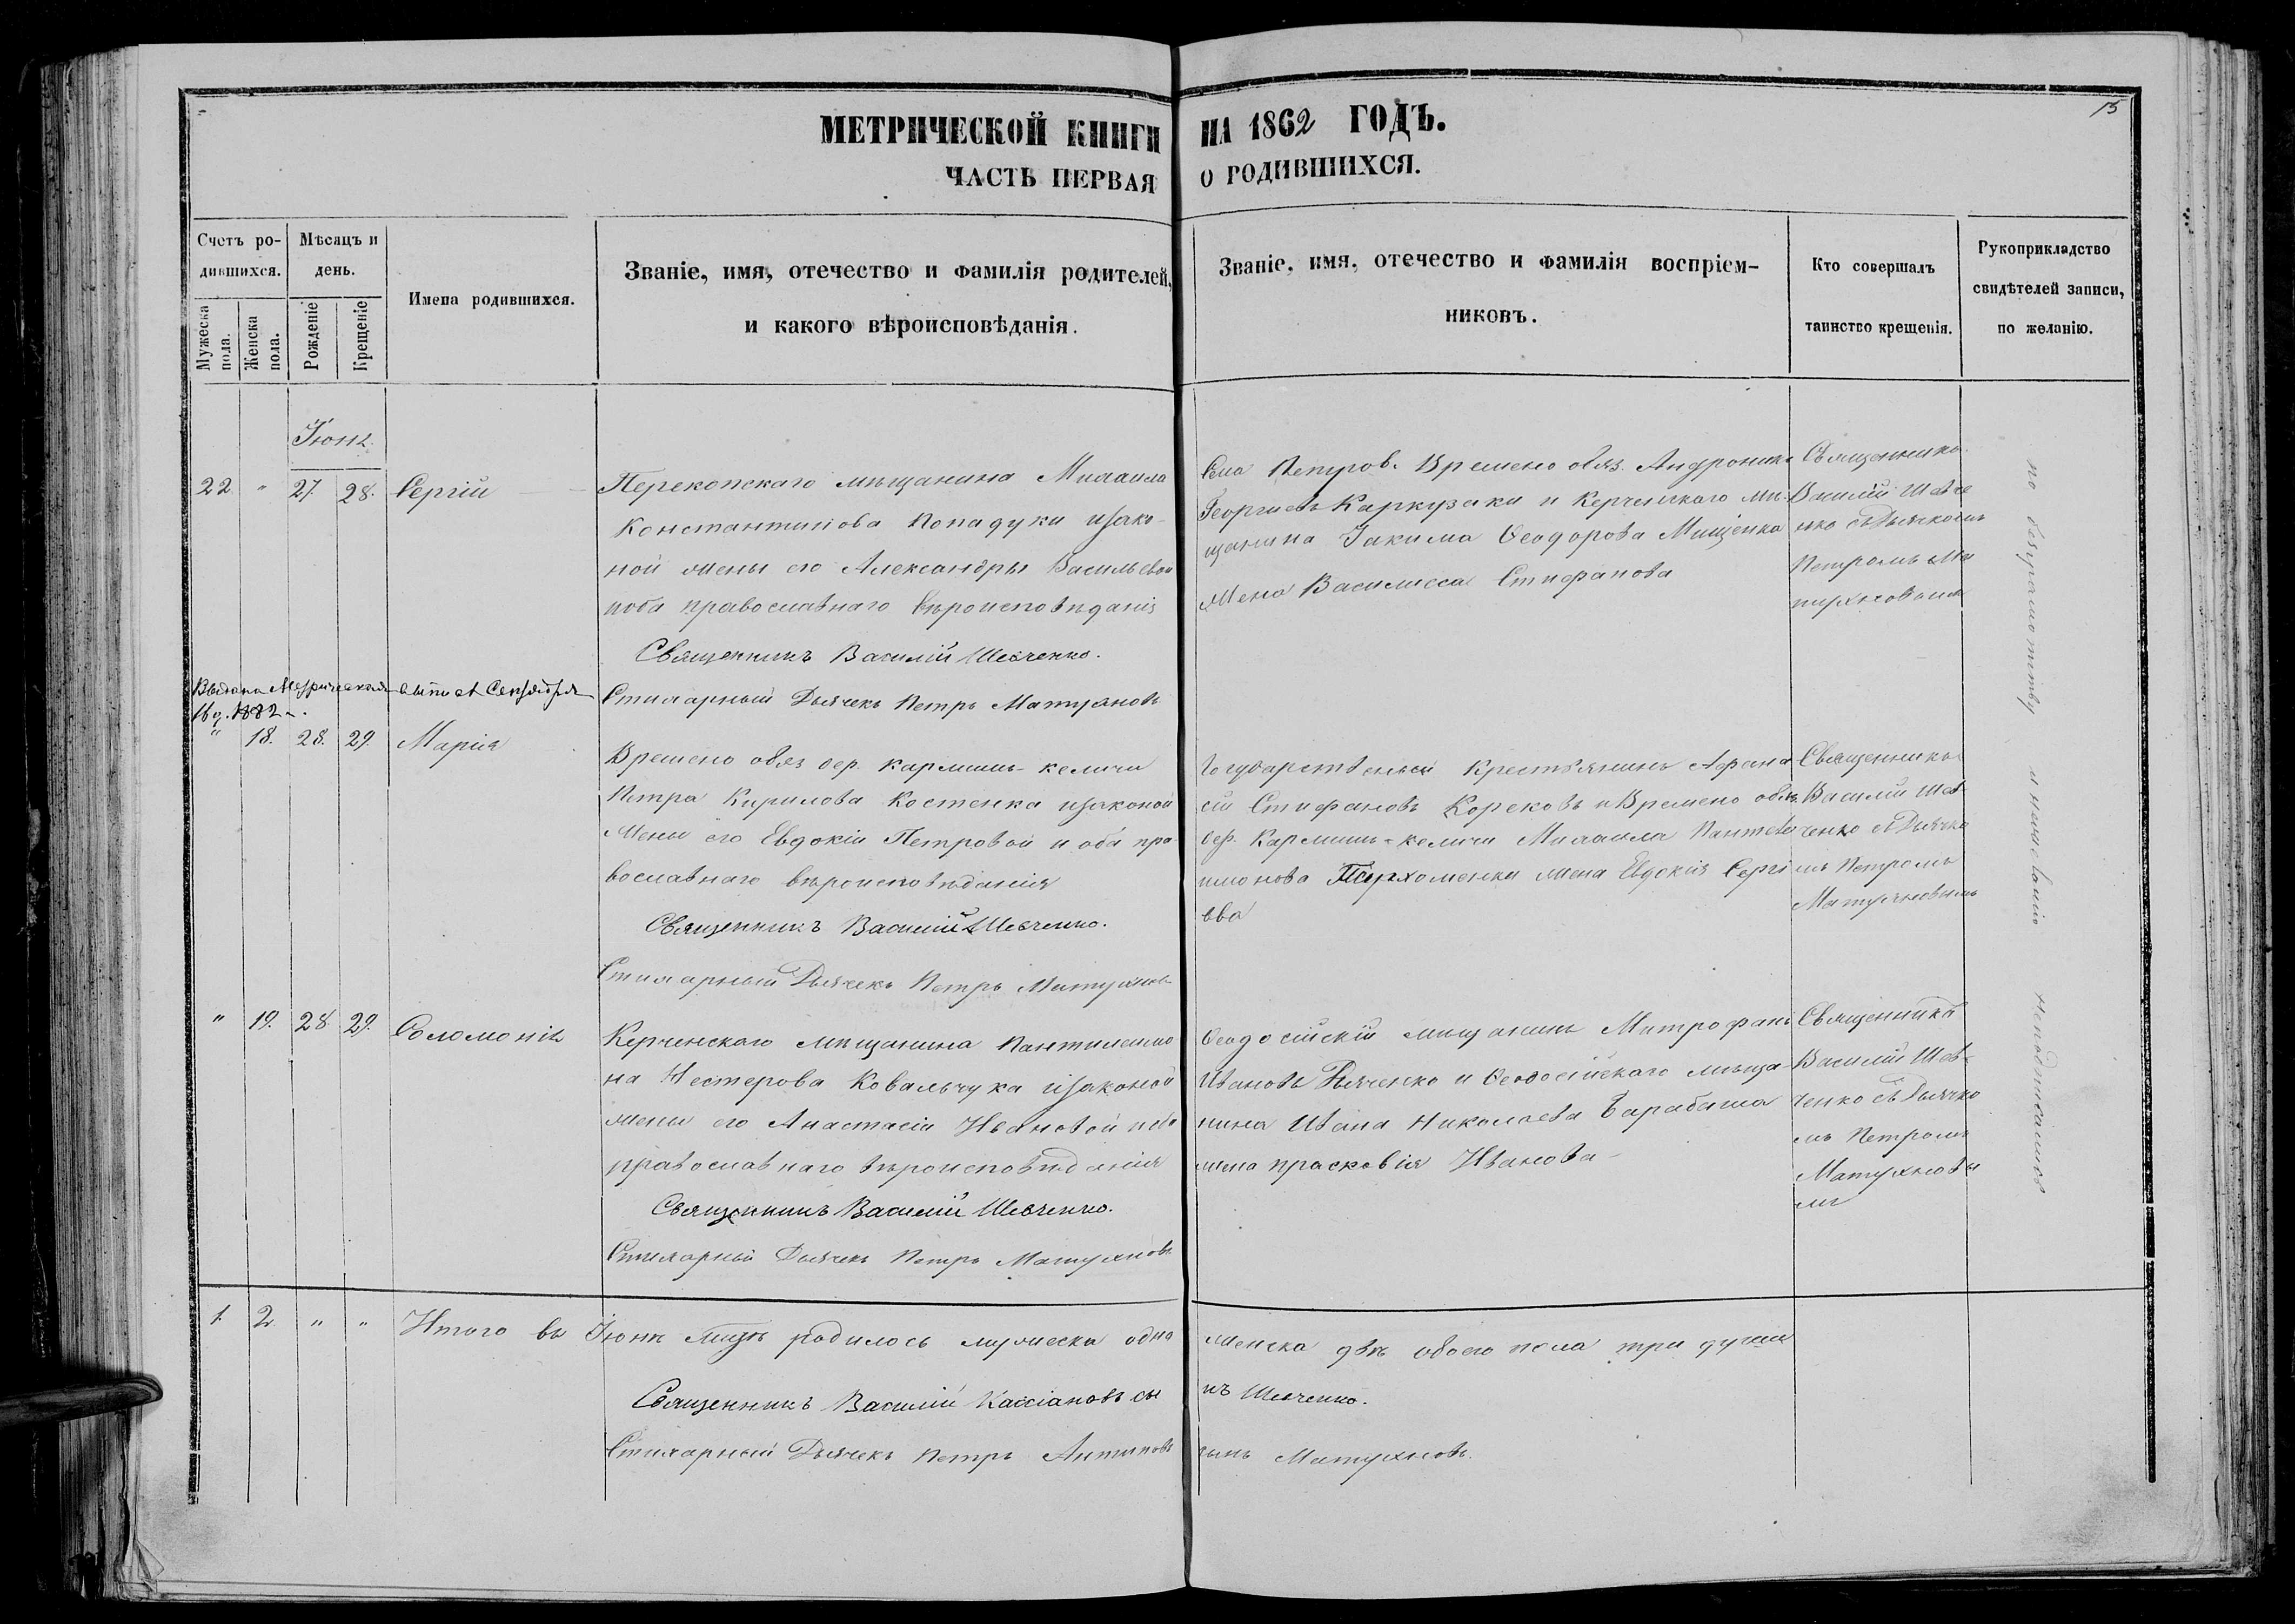 15
МЕТРИЧЕСКОЙ КНИГИ НА 1862 ГОДЪ.
ЧАСТЬ ПЕРВАЯ О РОДИВШИХСЯ.
Счетъ ро-
дившихся.
Мужеска пола.
Женска пола.
Мѣсяцъ и
день.
Рожденіе
Крещеніе
Имена родившихся.
Званіе, имя, отечество и фамилія родителей,
и какого вѣроисповѣданія.
Званіе, имя, отечество и фамилія воспріем-
никовъ.
Кто совершалъ
таинство крещенія.
Рукоприкладство
свидѣтелей записи,
по желанію.
Іюнь
22 " 27. 28. Сергій
Перекопскаго мѣщанина Михаила
Константинова Попадуки изако-
ной жены его Александры Васильевой
иоба православнаго вѣроисповѣданія
Священникъ Василій Шевченко.
Стихарный Дьячекъ Петръ Матухновъ
Села Петров. Времено обяз. Андроникъ
Георгіевъ Каркузаки и Керченскаго мѣ-
щанина Іакима Ѳеодорова Мищенка
жена Василиса Стифанова
Священникъ
Василій Шевче
нко съ Дьячкомъ
Петромъ Ма
тухновымъ
Выдана Метрическая выпись Сентября
16 д. 1882 г.
" 18. 28. 29. Марія
Времено обяз дер. Кармышъ-келичи
Петра Кирилова Костенка изаконой
жены его Евдокіи Петровой и оба пра
вославнаго вѣроисповѣданія
Священникъ Василій Шевченко.
Стихарный Дьячекъ Петръ Матухновъ
Государственый Крестьянинъ Афана
сій Стифановъ Кореховъ и Времено обяз.
дер. Кармышъ-келичи Михаила Пантеле
имонова Пархоменки жена Евдокія Сергі
ева
Священникъ
Василій Шев
ченко съ Дьячко
мъ Петромъ
Матухновымъ
" 19. 28 29. Соломонія
Керченскаго мѣщанина Пантилеимо
на Нестерова Ковальчука изаконой
жены его Анастасіи Ивановой иоба
православнаго вѣроисповѣданія
Священникъ Василій Шевченко.
Стихарный Дьячекъ Петръ Матухновъ
Ѳеодосійскій мѣщанинъ Митрофанъ
Ивановъ Дьяченко и Ѳеодосійскаго мѣща-
нина Ивана Николаева Барабаша
жена прасковія Иванова
Священникъ
Василій Шев-
ченко съ Дьячко
мъ Петромъ
Матухновы
мъ
по безграмотству и нежеланію неподписались
1. 2 " " Итого въ Іюнѣ мцѣ родилось мужеска одна женска двѣ обоего пола три души
Священникъ Василій Кассіановъ сынъ Шевченко.
Стихарный Дьячекъ Петръ Антиповъ сынъ Матухновъ.